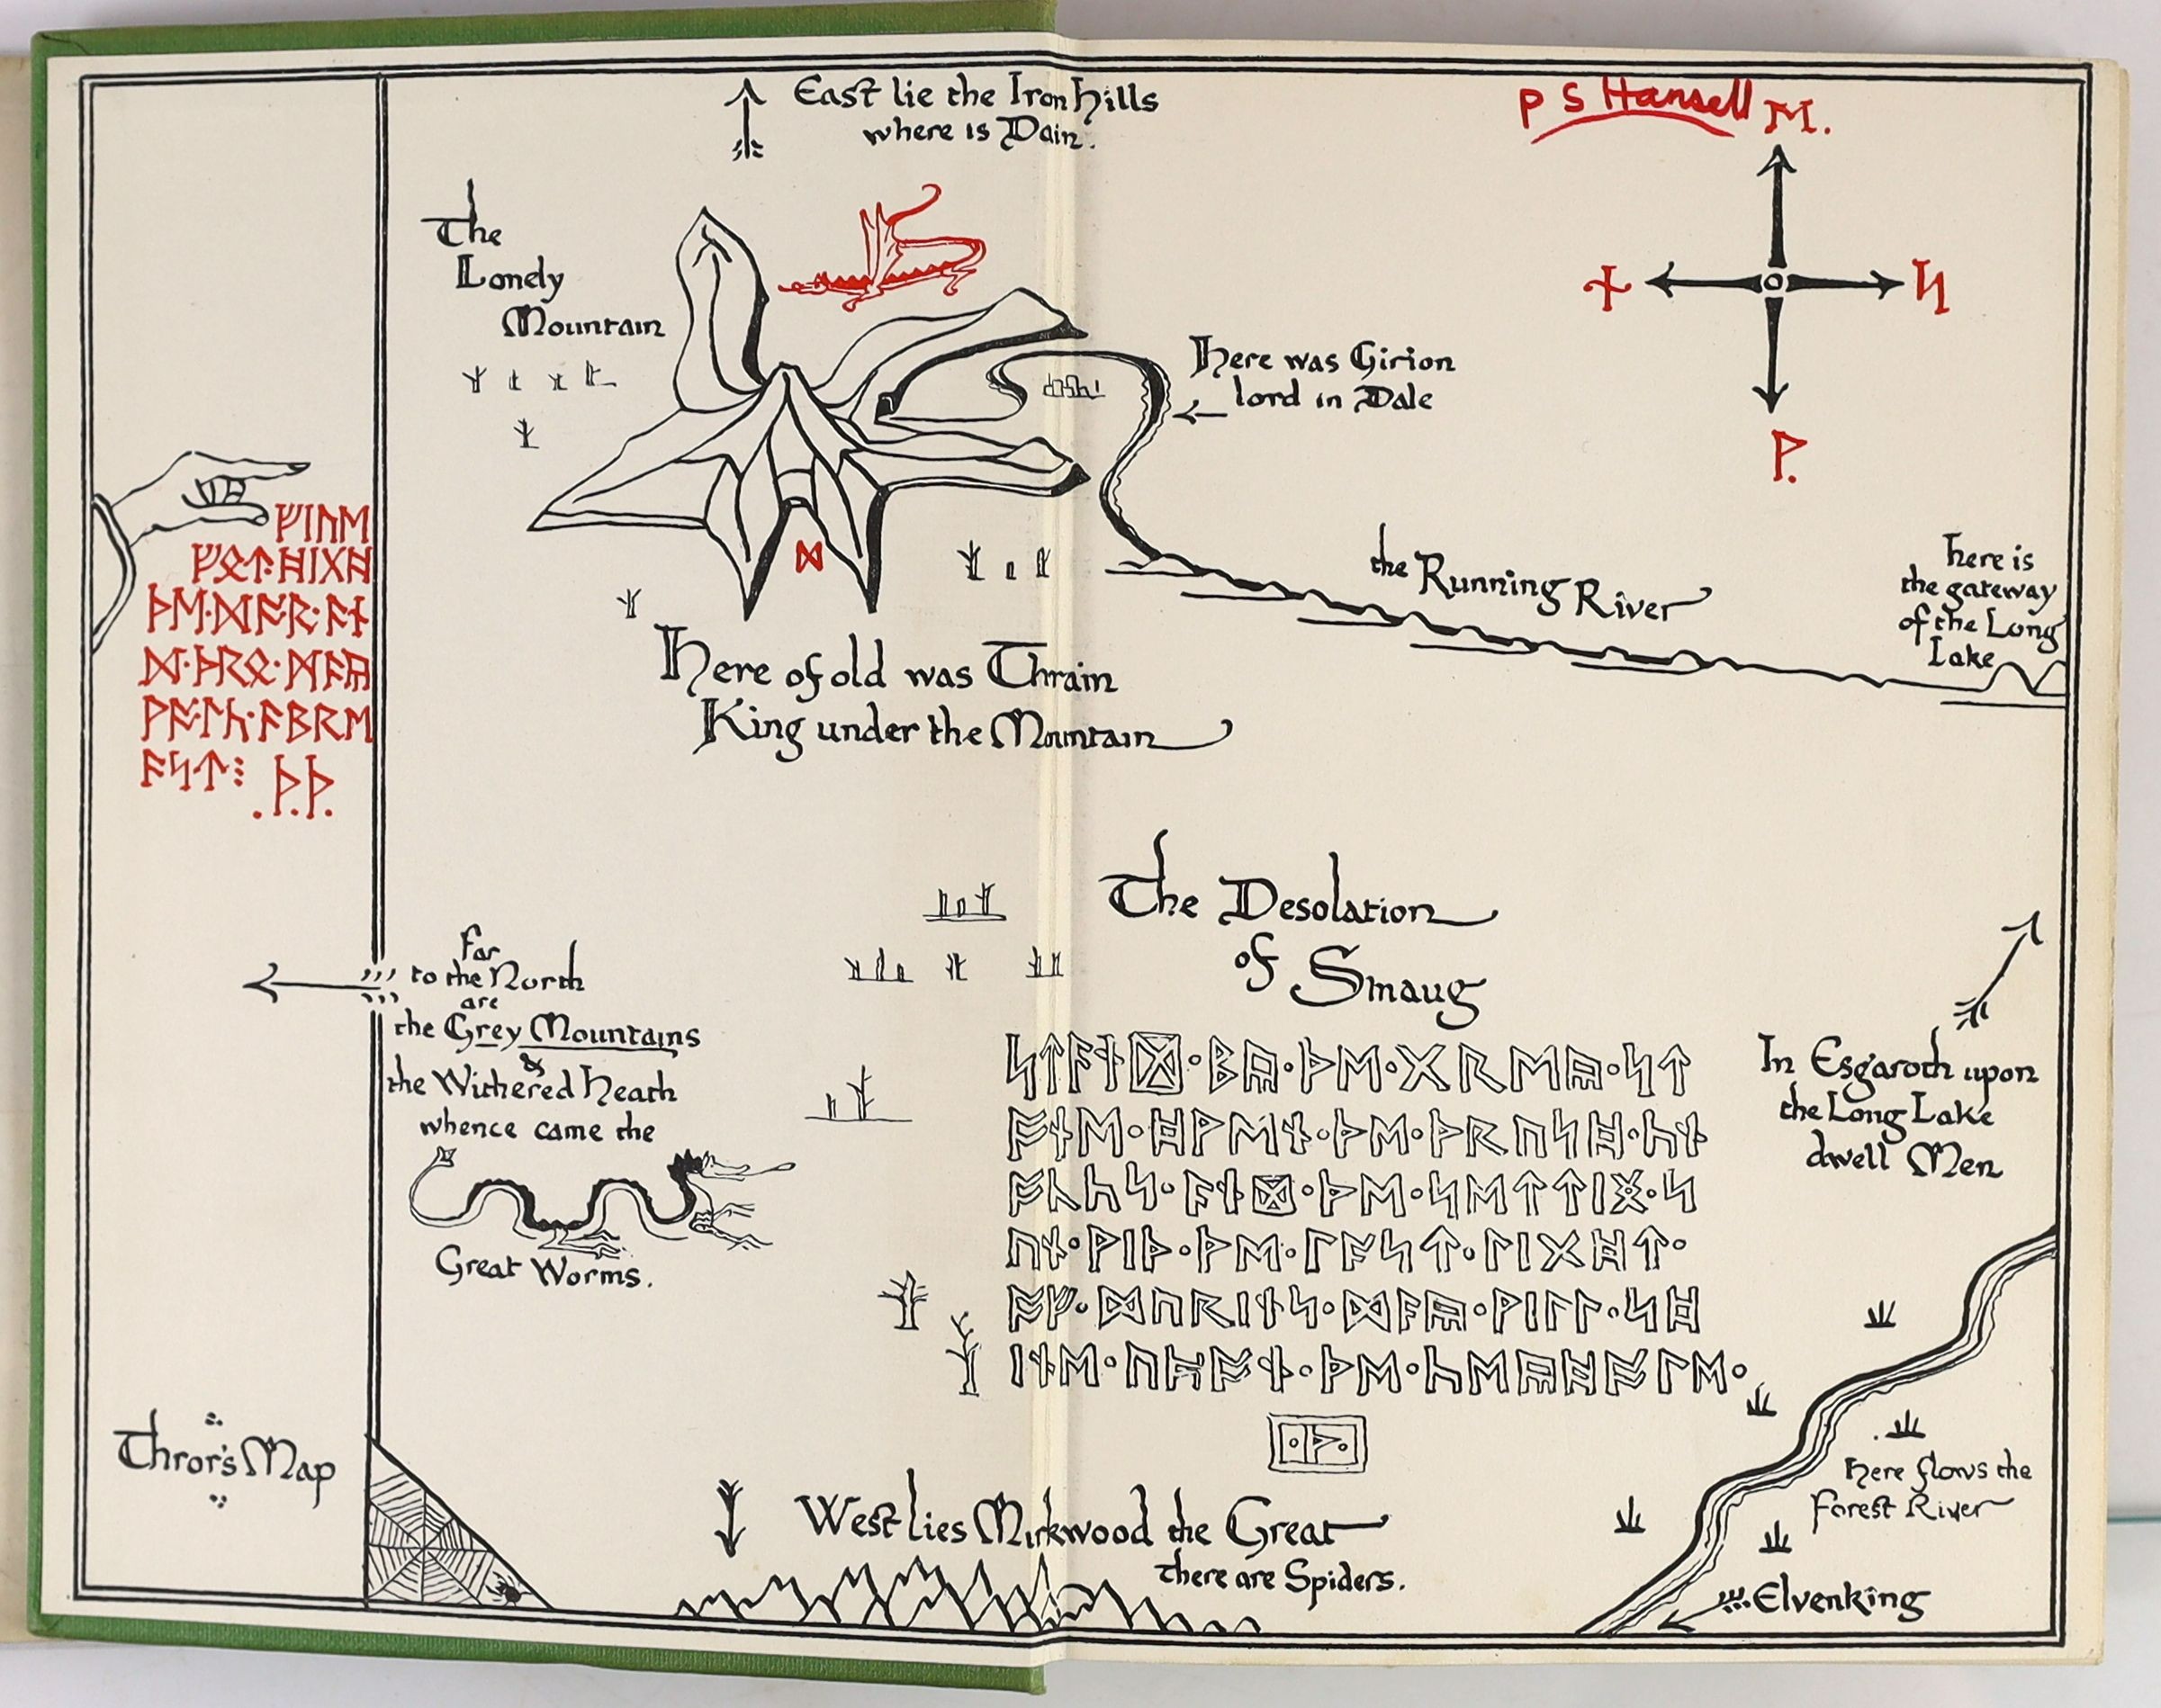 East lie the Iron Hills
where is Dain.
P S Hansell
ᛖ.
ᚾ
ᛋ
ᚹ.
The
Lonely
Mountain
Here was Girion
lord in Dale
ᛞ
ᚠᛁᚢᛖ
ᚠᛟᛏ·ᚻᛁᚷᚻ
ᚦᛖ·ᛞᚩᚱ·ᚪᚾ
ᛞ·ᚦᚱᛟ·ᛗᚪᚣ
ᚹᚪᛚᚳ·ᚪᛒᚱᛖ
ᚪᛋᛏ⁝
.ᚦ.ᚦ.
the Running River
Here is
the gateway
of the Long
Lake
Here of old was Thrain
King under the Mountain
The Desolation
of Smaug
far
to the North
are
the Grey Mountains
&
the Withered Heath
whence came the
Great Worms.
ᛋᛏᚪᚾᛞ·ᛒᚣ·ᚦᛖ·ᚷᚱᛖᚣ·ᛋᛏ
ᚩᚾᛖ·ᚻᚹᛖᚾ·ᚦᛖ·ᚦᚱᚢᛋᚻ·ᚳᚾ
ᚩᚳᚳᛋ·ᚪᚾᛞ·ᚦᛖ·ᛋᛖᛏᛏᛁᛝ·ᛋ
ᚢᚾ·ᚹᛁᚦ·ᚦᛖ·ᛚᚪᛋᛏ·ᛚᛁᚷᚻᛏ·
ᚩᚠ·ᛞᚢᚱᛁᚾᛋ·ᛞᚪᚣ·ᚹᛁᛚᛚ·ᛋᚻ
ᛁᚾᛖ·ᚢᛈᚩᚾ·ᚦᛖ·ᚳᛖᚣᚻᚩᛚᛖ·
·ᚦ·
In Esgaroth upon
the Long Lake
dwell Men
Thror's Map
West lies Mirkwood the Great
there are Spiders.
Here flows the
Forest River
Elvenking